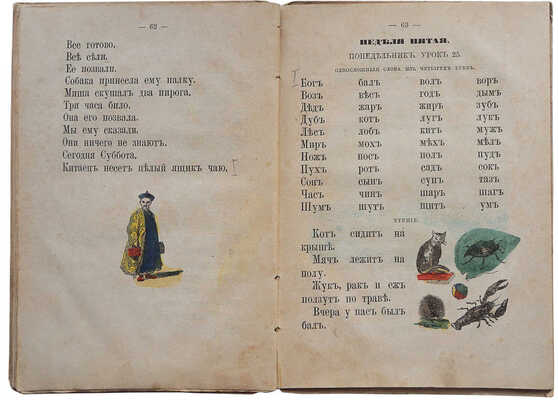 — 62 —
Все готово.
Всѣ сѣли.
Ее позвали.
Собака принесла ему палку.
Миша скушалъ два пирога.
Три часа било.
Она его позвала.
Мы ему сказали.
Они ничего не знаютъ.
Сегодня Суббота.
Китаецъ несетъ цѣлый ящикъ чаю.
— 63 —
НЕДѢЛЯ ПЯТАЯ.
ПОНЕДѢЛЬНИКЪ. УРОКЪ 25.
ОДНОСЛОЖНЫЯ СЛОВА ИЗЪ ЧЕТЫРЕХЪ БУКВЪ.
Богъ балъ волъ воръ
Возъ вѣсъ годъ дымъ
Дѣдъ жаръ жиръ зубъ
Дубъ котъ лугъ лукъ
Лѣсъ лобъ китъ мужъ
Миръ мохъ мѣхъ мѣлъ
Ножъ носъ полъ пудъ
Пухъ ротъ садъ сокъ
Сонъ сынъ супъ тазъ
Часъ чинъ шаръ шагъ
Шумъ шутъ щитъ умъ
ЧТЕНІЕ.
Котъ сидитъ на
крышѣ.
Мячъ лежитъ на
полу.
Жукъ, ракъ и ежъ
ползутъ по травѣ.
Вчера у насъ былъ
балъ.